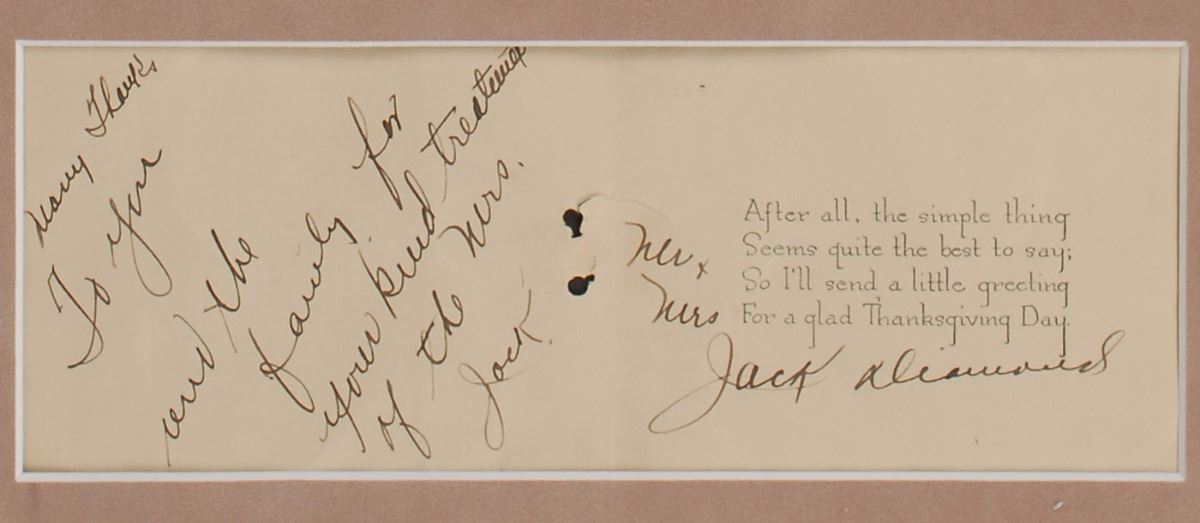 Many Thanks
To you
and the
family for
your kind treatment
of the Mrs.
Jack.
After all, the simple thing
Seems quite the best to say;
So I'll send a little greeting
For a glad Thanksgiving Day.
Mr. +
Mrs
Jack Diamond